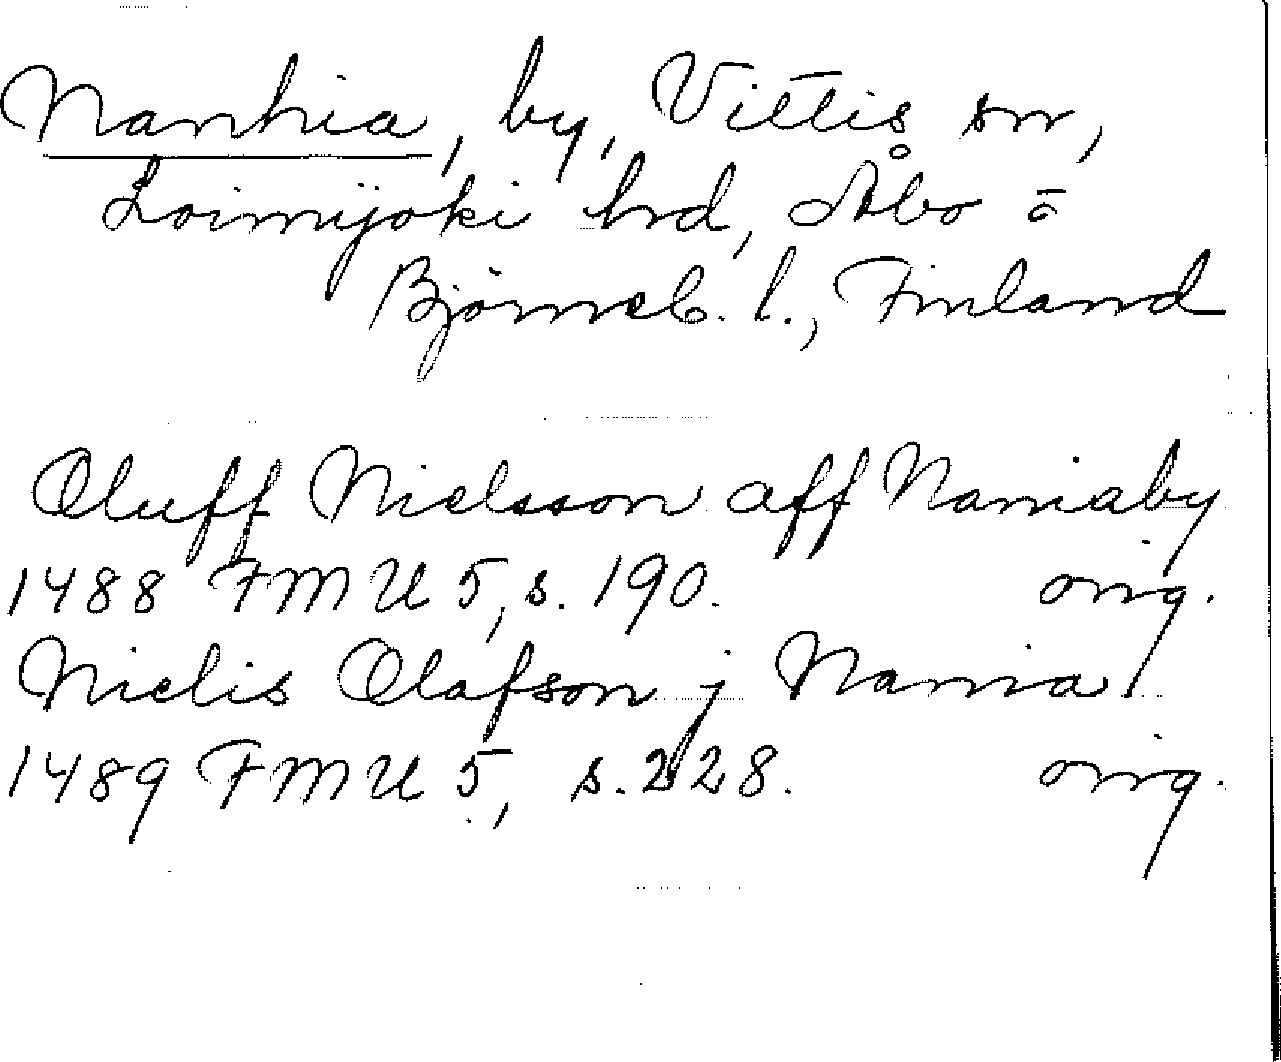 Nanhia, by, Vittis sn,
Loimijoki hd, Åbo o
Björneb. l., Finland
Oluff Nielsson aff Naniaby
1488 FMU 5, s. 190. orig.
Nielis Olafson j Nania
1489 FMU 5, s. 228. orig.